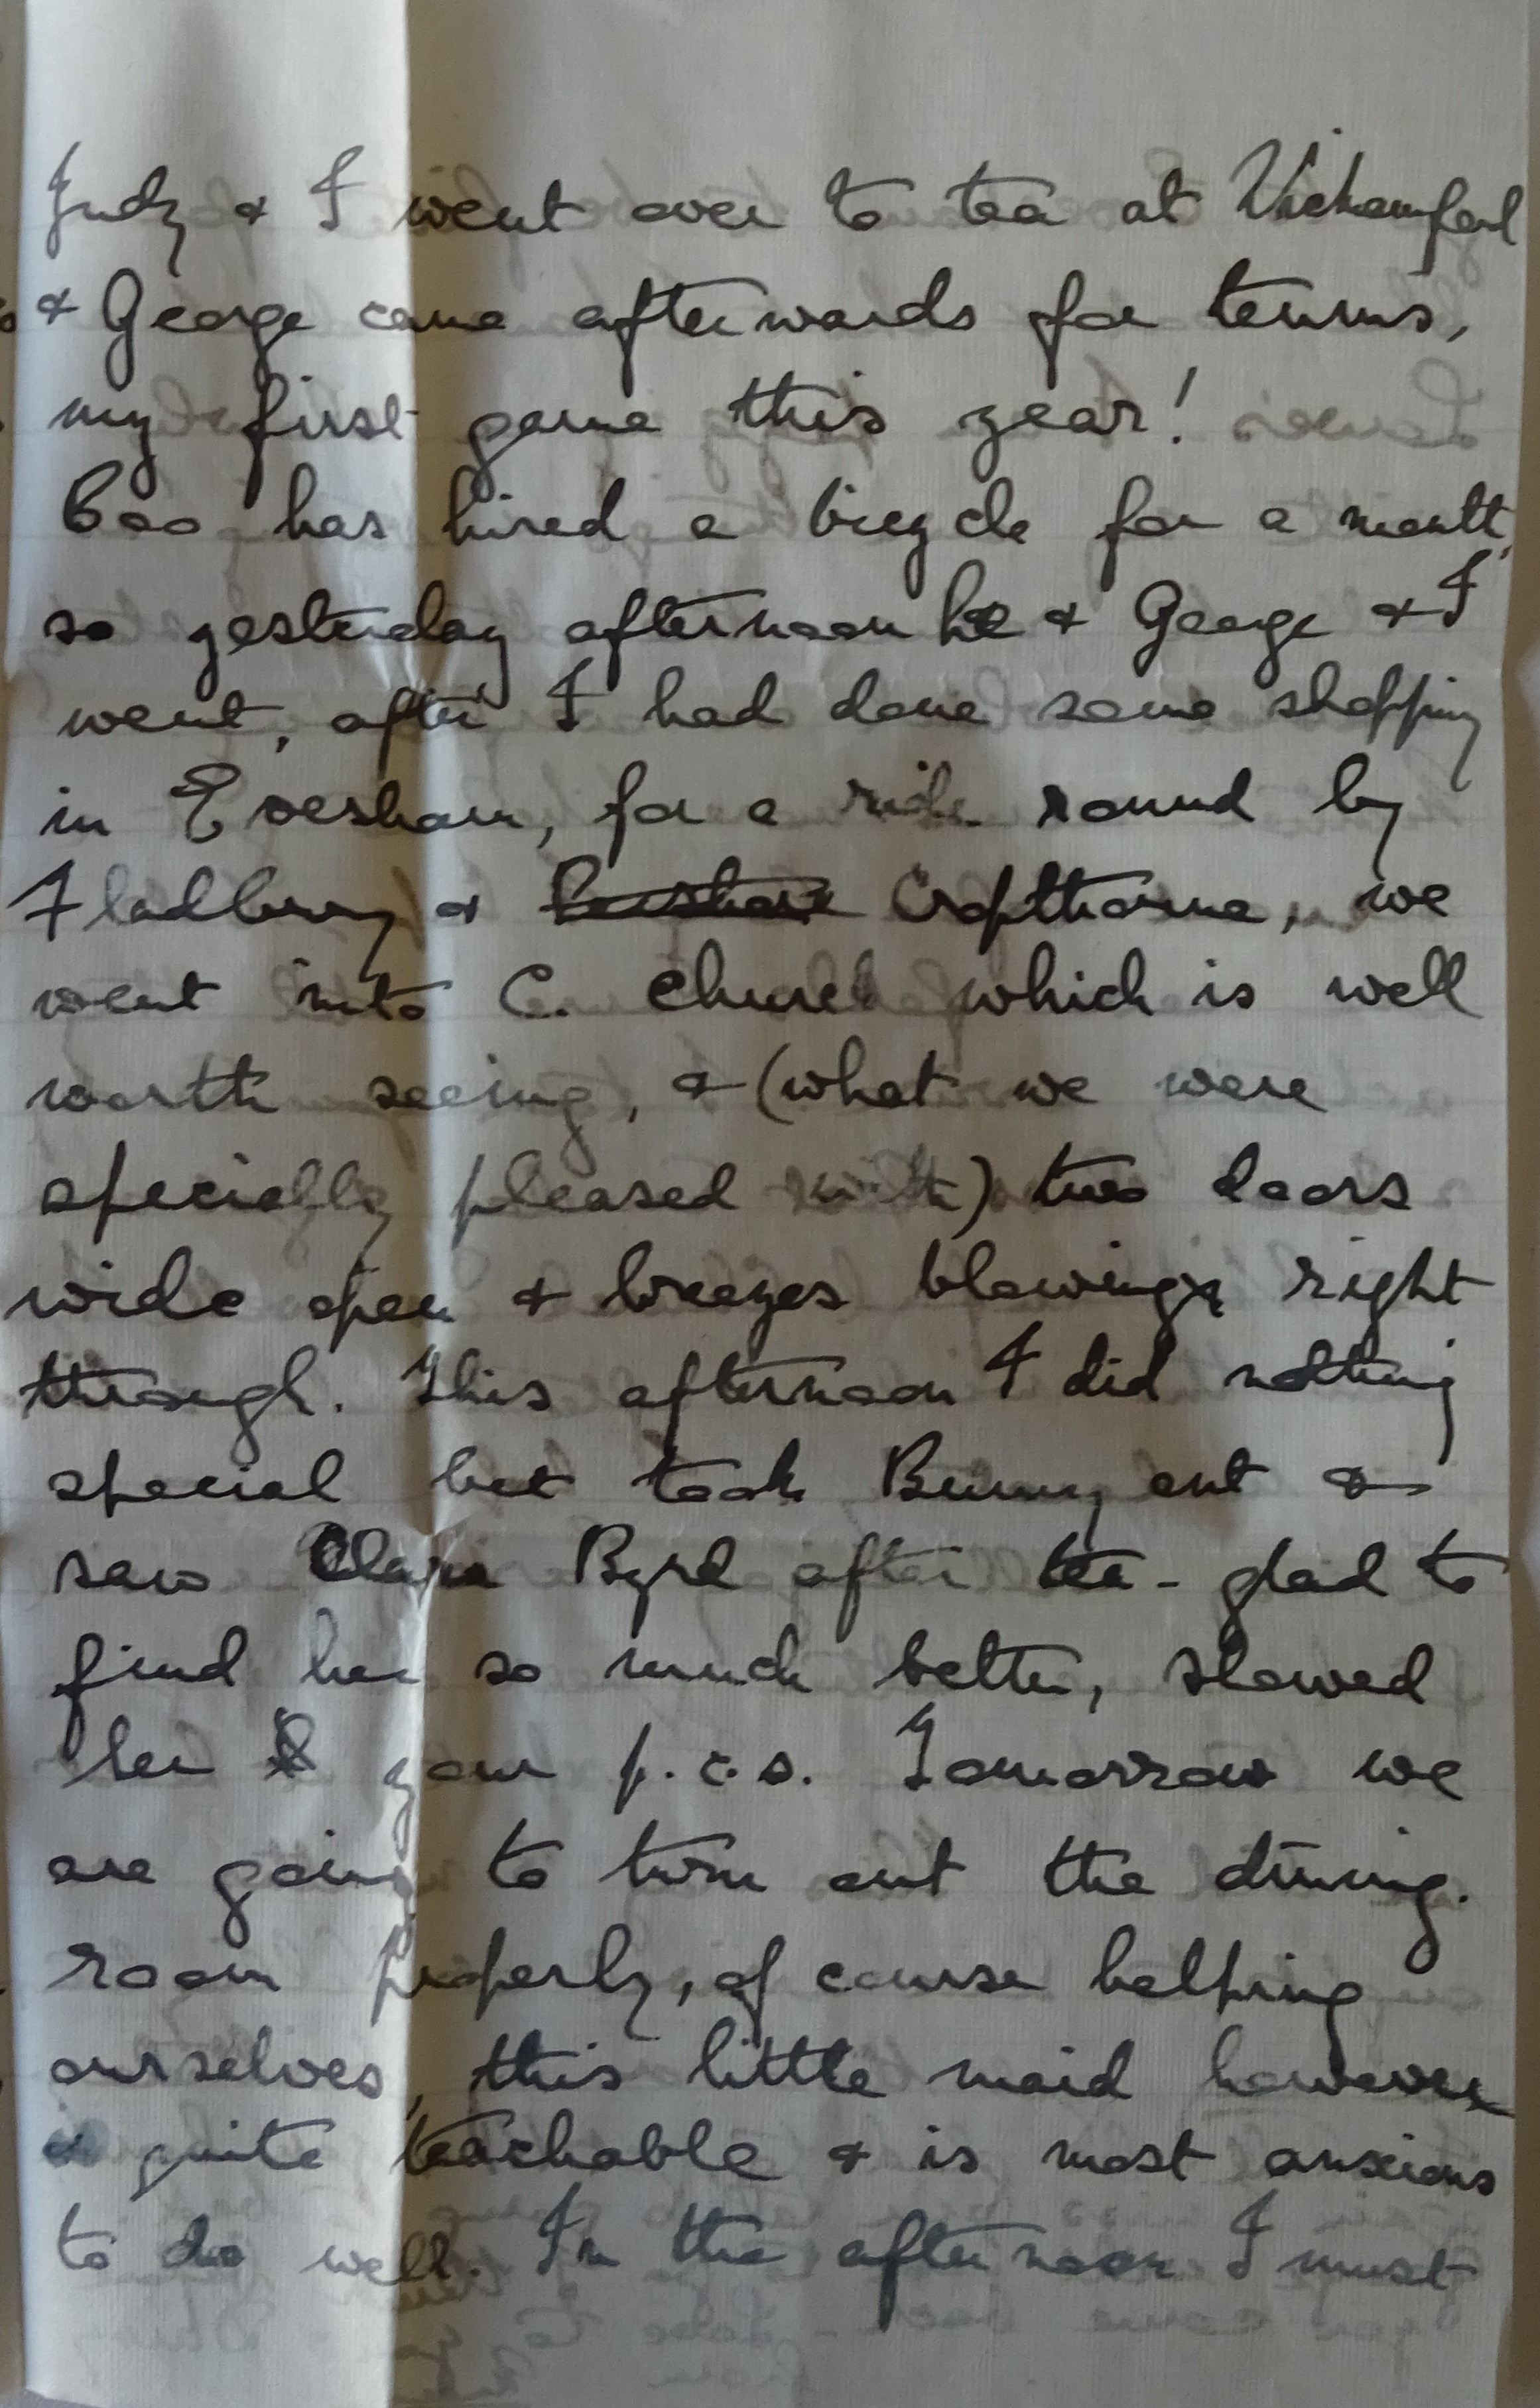 Judy & I went over to tea at Wickhamford
& George came afterwards for tennis,
my first game this year!
Boo has hired a bicycle for a month,
so yesterday afternoon he & George & I
went, after I had done some shopping
in Evesham, for a ride round by
Fladbury & Cropthorne, we
went into C. church which is well
worth seeing, & (what we were
specially pleased with) two doors
wide open & breezes blowing right
through. This afternoon I did nothing
special but took Bunny out &
saw Clara Byrd after tea - glad to
find her so much better, showed
her your p.c.s. Tomorrow we
are going to turn out the dining-
room properly, of course helping
ourselves, this little maid however
is quite teachable & is most anxious
to do well. In the afternoon I must